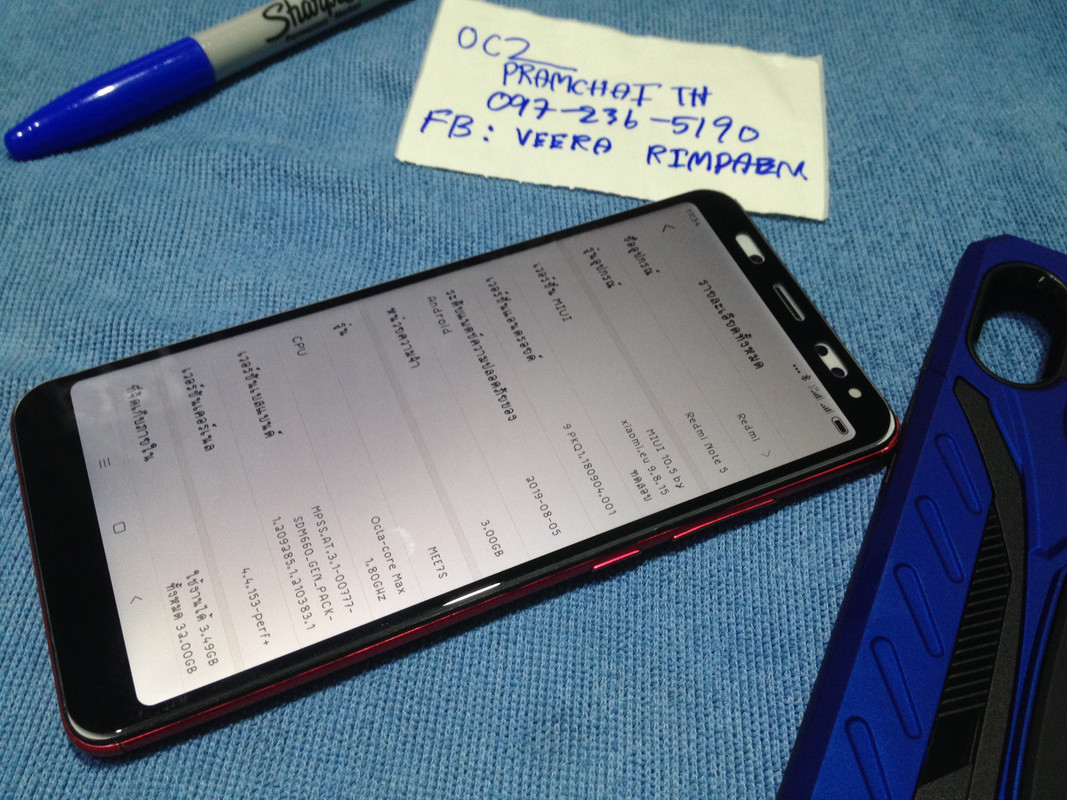 Sharpie
OC2
PRAMCHAI TH
097-236-5190
FB: VEERA RIMPAEN
11:54
รายละเอียดทั้งหมด
ชื่ออุปกรณ์ Redmi
รุ่นอุปกรณ์ Redmi Note 5
เวอร์ชัน MIUI MIUI 10.5 by
xiaomi.eu 9.8.15
ทดสอบ
เวอร์ชันแอนดรอยด์ 9 PKQ1.180904.001
ระดับแพตช์ความปลอดภัยของ
Android 2019-08-05
หน่วยความจำ 3.00GB
รุ่น MEE7S
CPU Octa-core Max
1.80GHz
เวอร์ชันเบสแบนด์ MPSS.AT.3.1-00777-
SDM660_GEN_PACK-
1.209285.1.210383.1
เวอร์ชันเคอร์เนล 4.4.153-perf+
ที่จัดเก็บภายใน ใช้งานได้ 3.49GB
ทั้งหมด 32.00GB